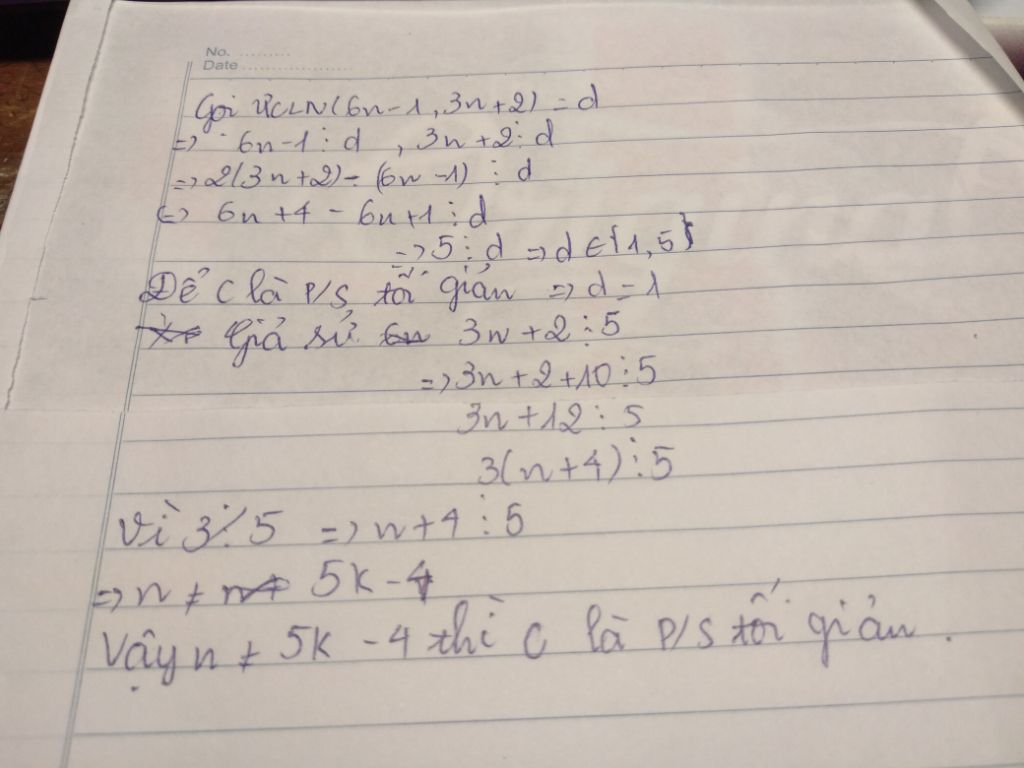 No. ..........
Date ......................
Gọi ƯCLN(6n-1, 3n+2) = d
=> 6n-1 ⋮ d , 3n+2 ⋮ d
=> 2(3n+2) - (6n-1) ⋮ d
<=> 6n+4 - 6n+1 ⋮ d
=> 5 ⋮ d => d ∈ {1, 5}
Để C là P/S tối giản => d = 1
Giả sử 3n+2 ⋮ 5
=> 3n+2+10 ⋮ 5
3n+12 ⋮ 5
3(n+4) ⋮ 5
Vì 3 ⋮̸ 5 => n+4 ⋮ 5
=> n ≠ 5k-4
Vậy n ≠ 5k-4 thì C là P/S tối giản.